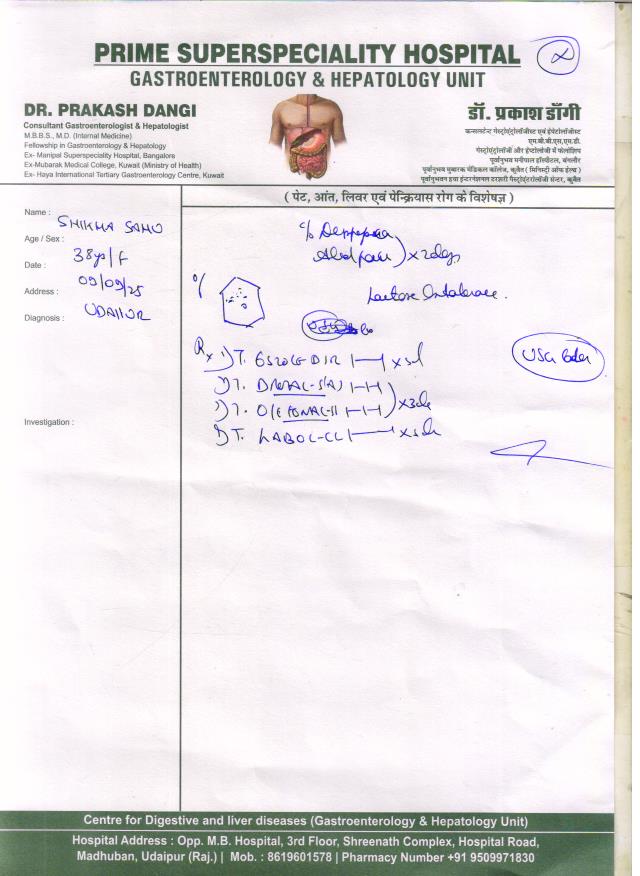 PRIME SUPERSPECIALITY HOSPITAL
GASTROENTEROLOGY & HEPATOLOGY UNIT
DR. PRAKASH DANGI
Consultant Gastroenterologist & Hepatologist
M.B.B.S., M.D. (Internal Medicine)
Fellowship in Gastroenterology & Hepatology
Ex- Manipal Superspeciality Hospital, Bangalore
Ex-Mubarak Medical College, Kuwait (Ministry of Health)
Ex- Haya International Tertiary Gastroenterology Centre, Kuwait
डॉ. प्रकाश डाँगी
कन्सलटेन्ट गेस्ट्रोएंट्रोलॉजीस्ट एवं हेपेटोलॉजीस्ट
एम.बी.बी.एस.,एम.डी.
गेस्ट्रोएंट्रोलॉजी और हेप्टोलॉजी में फेलोशिप
पूर्वानुभव मनीपाल हॉस्पीटल, बंगलौर
पूर्वानुभव मुबारक मेडिकल कॉलेज, कुवैत ( मिनिस्ट्री ऑफ हेल्थ )
पूर्वानुभव हया इन्टरनेशनल टरशरी गैस्ट्रोएंटरोलॉजी सेन्टर, कुवैत
( पेट, आंत, लिवर एवं पेन्क्रियास रोग के विशेषज्ञ )
Name : SHIKHA SAHU
Age / Sex : 38yr/F
Date : 09/09/25
Address : UDAIPUR
Diagnosis :
Investigation :
c/o
Abd pain x 2days
Lactose Intolerance.
USG
Rx 1) T.
T.
T.
T.
Centre for Digestive and liver diseases (Gastroenterology & Hepatology Unit)
Hospital Address : Opp. M.B. Hospital, 3rd Floor, Shreenath Complex, Hospital Road,
Madhuban, Udaipur (Raj.) | Mob. : 8619601578 | Pharmacy Number +91 9509971830